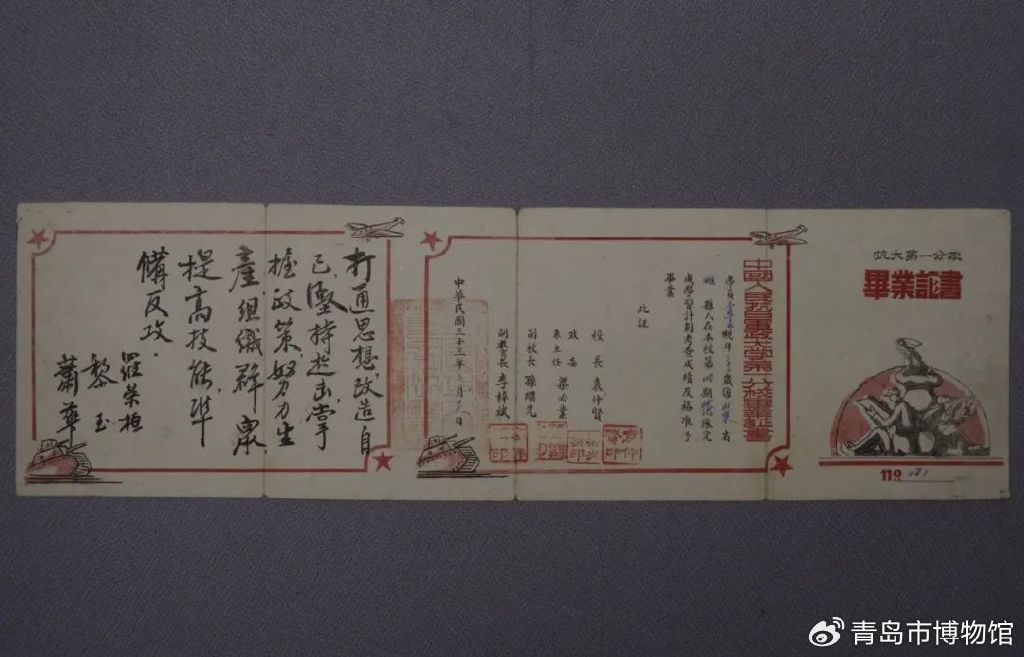 抗大第一分校
畢業証書
No
中國人民抗日軍政大學第一分校畢業証書
學員 現年 歲係山東省
縣人在本校第四期 隊完
成學習計劃考查成績及格准予
畢業
此証
校長 袁仲賢
政委
兼主任 梁必業
副校長 孫繼先
副教育長 李梓斌
中華民國三十三年 月 日
打通思想，改造自
己，堅持起击，掌
握政策，努力生
產，組織群眾，
提高技能，準
備反攻．
羅荣桓
黎玉
蕭華
青岛市博物馆